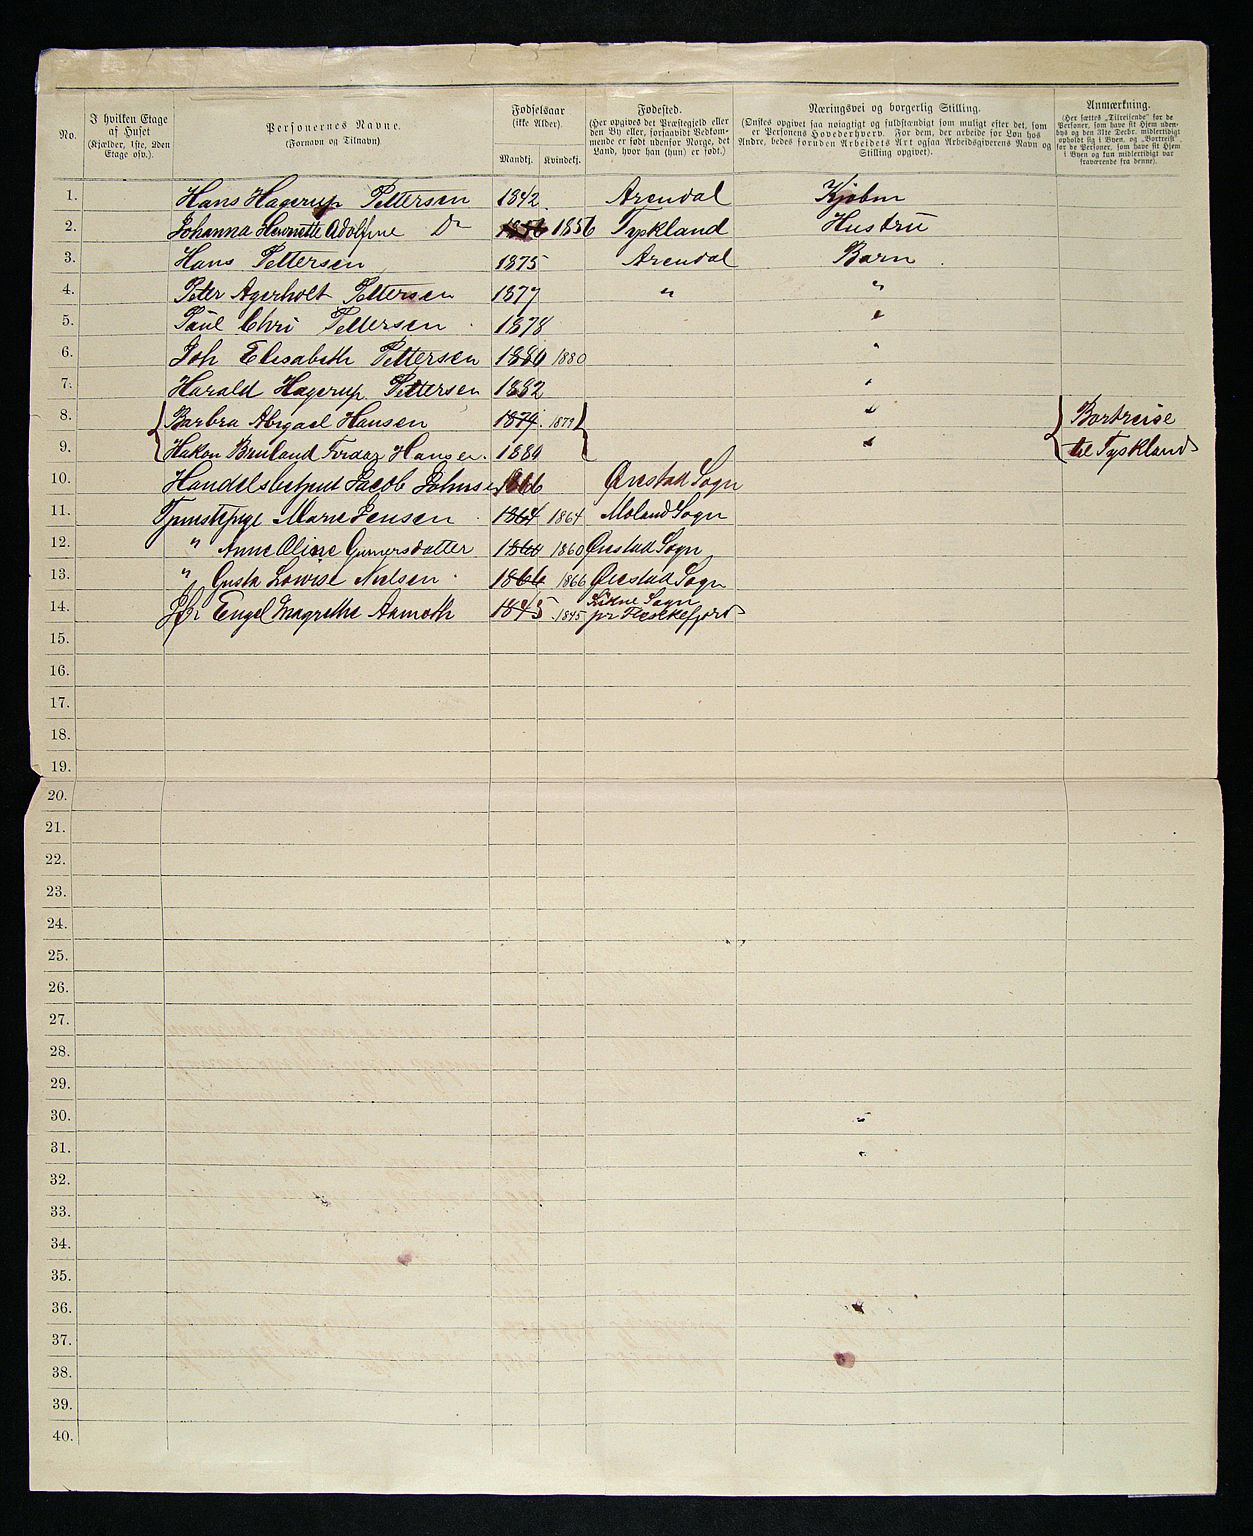 No.
I hvilken Etage af Huset (Kjælder, 1ste, 2den Etage osv.).
Personernes Navne. (Fornavn og Tilnavn)
Fødselsaar (ikke Alder).
Mandkj. Kvindekj.
Fødested. (Her opgives det Præstegjeld eller den By eller, forsaavidt Vedkommende er født udenfor Norge, det Land, hvor han (hun) er født.)
Næringsvei og borgerlig Stilling. (Ønskes opgivet saa nøiagtigt og fuldstændigt som muligt efter det, som er Personens Hovederhverv. For dem, der arbeide for Løn hos Andre, bedes foruden Arbeidets Art ogsaa Arbeidsgiverens Navn og Stilling opgivet).
Anmærkning. (Her sættes „Tilreisende" for de Personer, som have sit Hjem udenbys og den 31te Decbr. midlertidigt opholdt sig i Byen, og „Bortreist" for de Personer, som have sit Hjem i Byen og kun midlertidigt var fraværende fra denne).
1. Hans Hagerup Pettersen 1842 Arendal Kjøbm
2. Johanna Henriette Adolfine Do 1856 1856 Tyskland Hustru
3. Hans Pettersen 1875 Arendal Barn
4. Peter Agerholt Pettersen 1877 " "
5. Paul Chri Pettersen 1878 "
6. Joh Elisabeth Pettersen 1880 1880 "
7. Harald Hagerup Pettersen 1882 "
8. Barbra Abigael Hansen 1879 1879 " Bortreise
9. Hakon Hansen 1880 " til Tyskland
10. Handelsbetjent Jacob 1866 Øiestad Sogn
11. Tjenestepige Marie Jensen 1864 1864 Moland Sogn
12. " Anne Oline Gunnersdatter 1860 1860 Øiestad Sogn
13. " Gusta Lowise Nielsen 1866 1866 Øiestad Sogn
14. Engel Magrethe Aamoth 1845 1845 Sogn
pr Flekkefjord
15.
16.
17.
18.
19.
20.
21.
22.
23.
24.
25.
26.
27.
28.
29.
30.
31.
32.
33.
34.
35.
36.
37.
38.
39.
40.